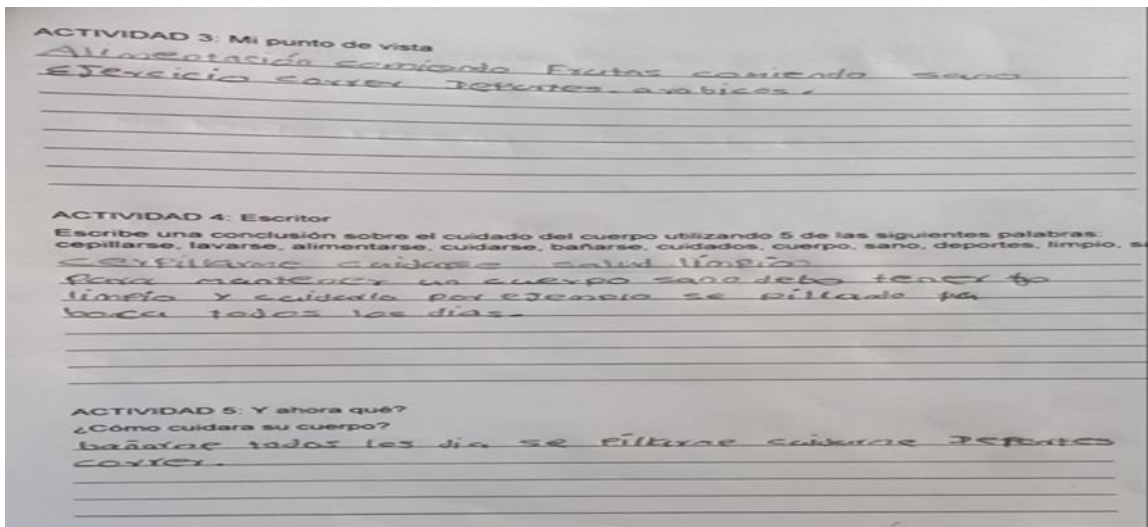 ACTIVIDAD 3: Mi punto de vista
Alimentasión comiendo Frutas comiendo sano
EJercicio correr Deportes. arabicos.
ACTIVIDAD 4: Escritor
Escribe una conclusión sobre el cuidado del cuerpo utilizando 5 de las siguientes palabras:
cepillarse, lavarse, alimentarse, cuidarse, bañarse, cuidados, cuerpo, sano, deportes, limpio, s
cuidarse salud límpio
Para mantener un cuerpo sano debo tener
límpio y cuidarlo por eJemplo se pillando
boca todos los días.
ACTIVIDAD 5: Y ahora qué?
¿Cómo cuidara su cuerpo?
bañarme todos los dia se pillarme cuidarme Deportes
correr.